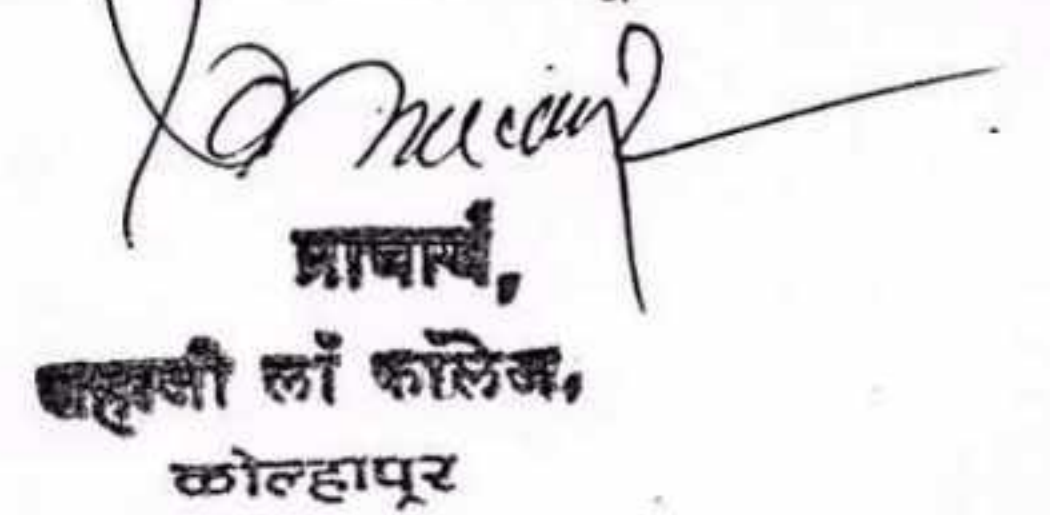 प्राचार्य,
शहाजी लॉ कॉलेज,
कोल्हापूर